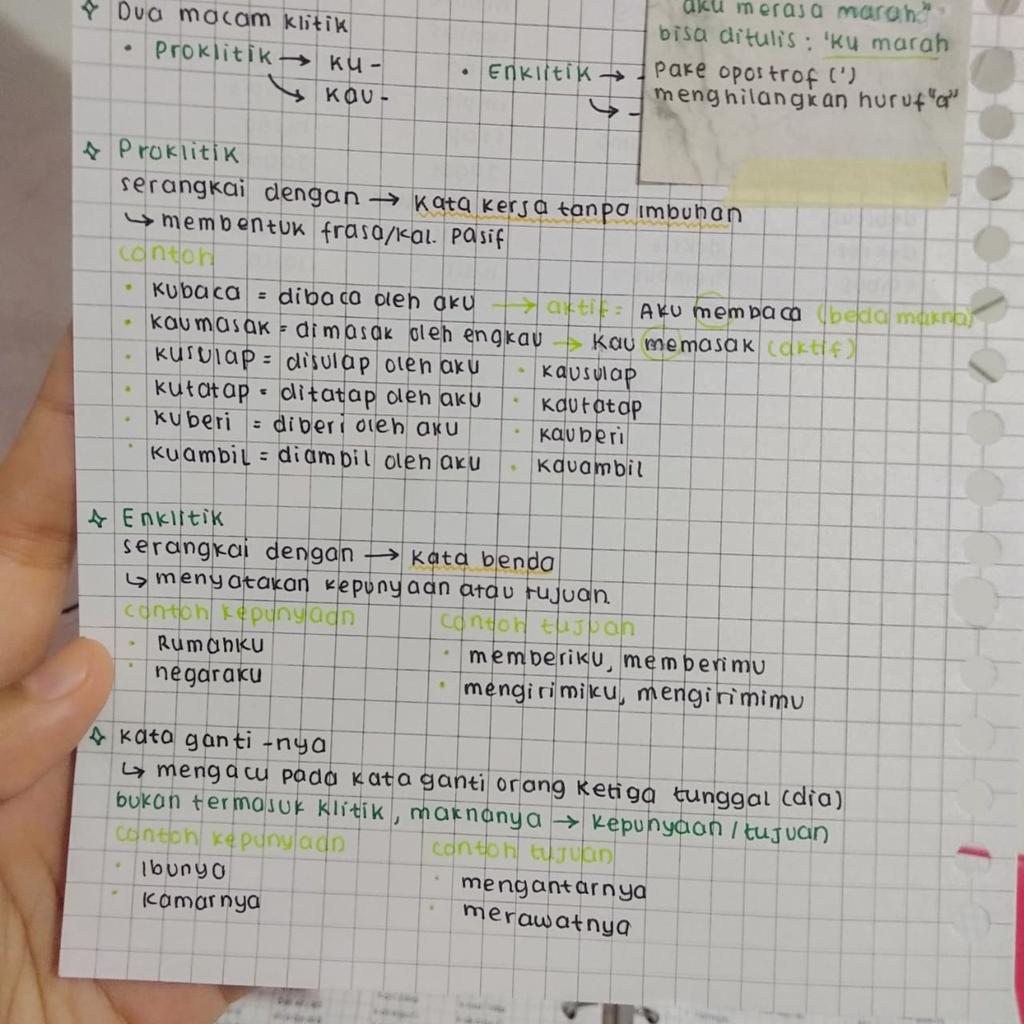 Dua macam klitik
• Proklitik → ku-
↳ kau-
• Enklitik → -
↳ -
aku merasa marah"
bisa ditulis : 'ku marah
pake apostrof (')
menghilangkan huruf "a"
Proklitik
serangkai dengan → kata kerja tanpa imbuhan
↳ membentuk frasa/kal. pasif
contoh
• kubaca = dibaca oleh aku → aktif = Aku membaca (beda makna)
• kaumasak = dimasak oleh engkau → kau memasak (aktif)
• kusulap = disulap oleh aku • kausulap
• kutatap = ditatap oleh aku • kautatap
• kuberi = diberi oleh aku • kauberi
• kuambil = diambil oleh aku • kauambil
Enklitik
serangkai dengan → kata benda
↳ menyatakan kepunyaan atau tujuan
contoh kepunyaan contoh tujuan
• Rumahku • memberiku, memberimu
• negaraku • mengirimiku, mengirimimu
kata ganti -nya
↳ mengacu pada kata ganti orang ketiga tunggal (dia)
bukan termasuk klitik, maknanya → kepunyaan/tujuan
contoh kepunyaan contoh tujuan
• Ibunya • mengantarnya
• kamarnya • merawatnya